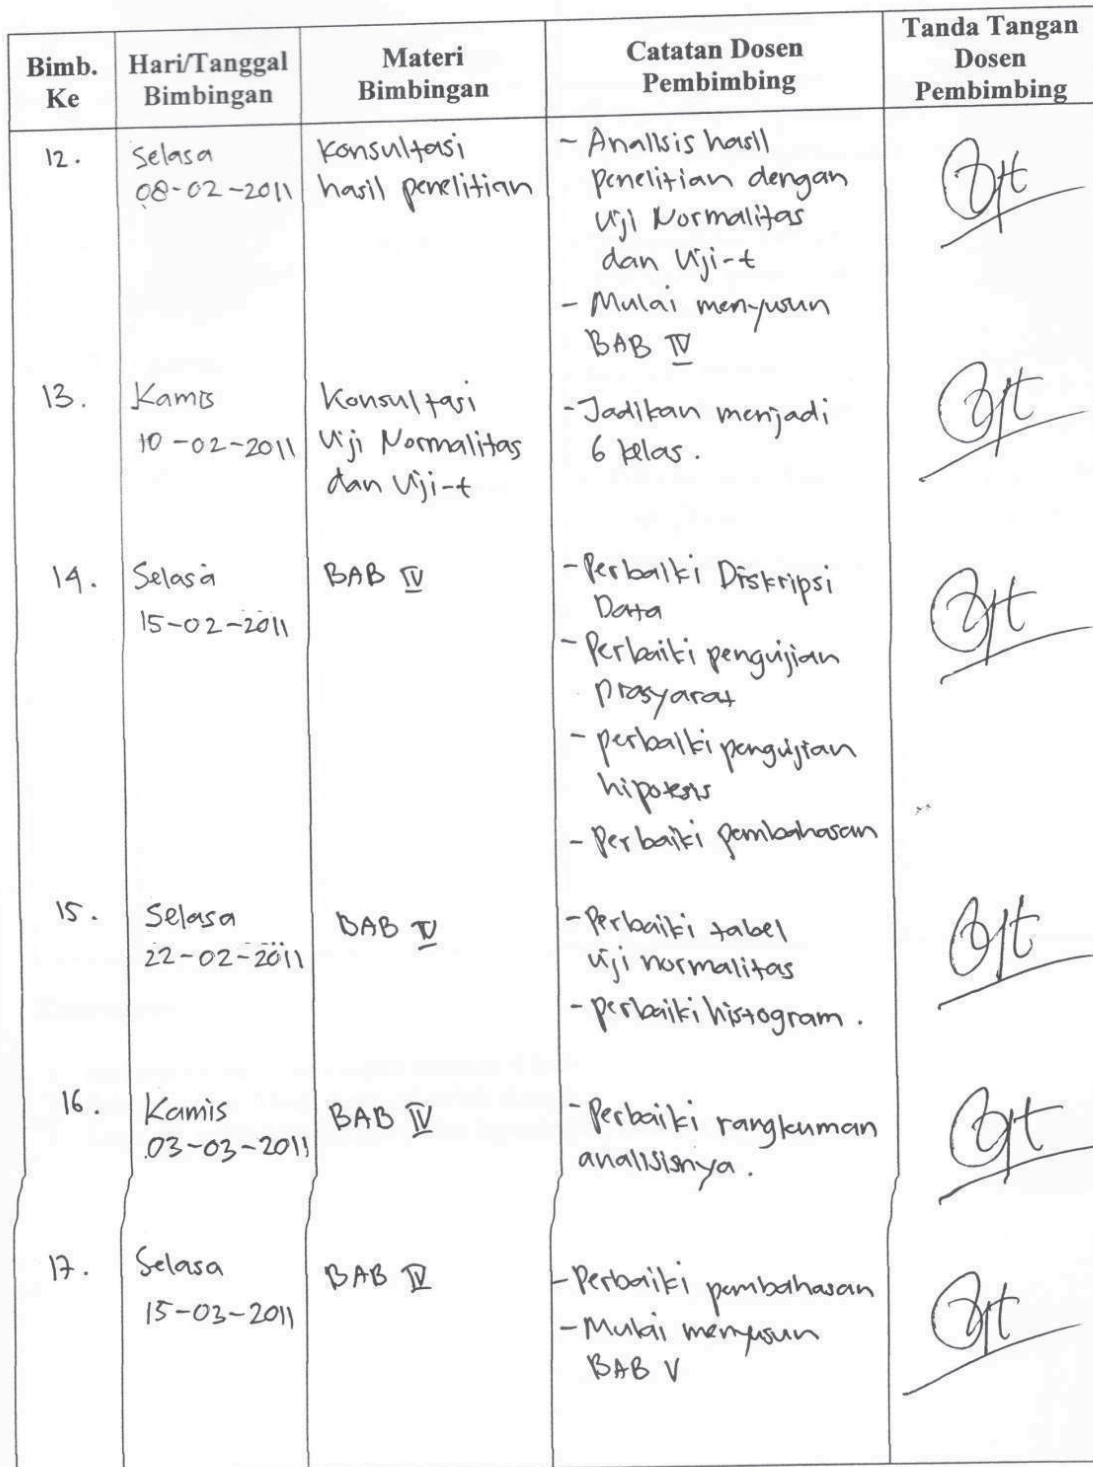 Bimb. Ke
Hari/Tanggal Bimbingan
Materi Bimbingan
Catatan Dosen Pembimbing
Tanda Tangan Dosen Pembimbing
12.
Selasa
08-02-2011
Konsultasi
hasil penelitian
- Analisis hasil
penelitian dengan
Uji Normalitas
dan Uji-t
- Mulai menyusun
BAB IV
13.
Kamis
10-02-2011
Konsultasi
Uji Normalitas
dan Uji-t
- Jadikan menjadi
6 kelas.
14.
Selasa
15-02-2011
BAB IV
- Perbaiki Diskripsi
Data
- Perbaiki pengujian
prasyarat
- perbaiki pengujian
hipotesis
- Perbaiki pembahasan
15.
Selasa
22-02-2011
BAB IV
- Perbaiki tabel
uji normalitas
- perbaiki histogram.
16.
Kamis
03-03-2011
BAB IV
- Perbaiki rangkuman
analisisnya.
17.
Selasa
15-03-2011
BAB IV
- Perbaiki pembahasan
- Mulai menyusun
BAB V